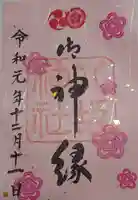 御神縁
令和元年十二月十一日